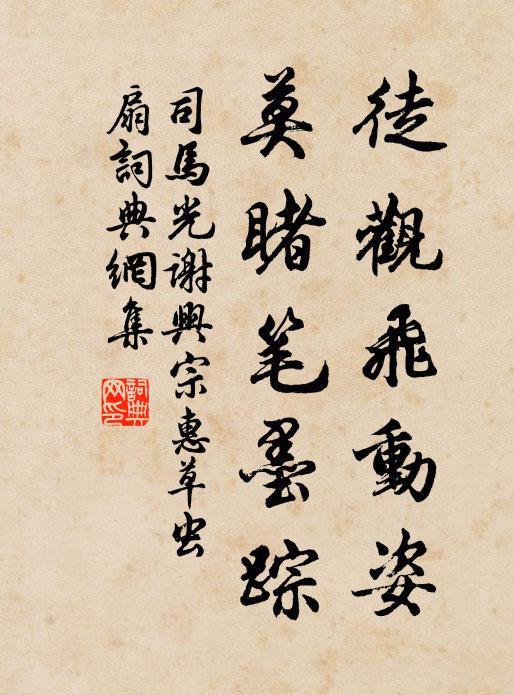 徒觀飛動姿
莫睹笔墨踪
司馬光謝興宗惠草虫
扇詞典網集
詞典
网印